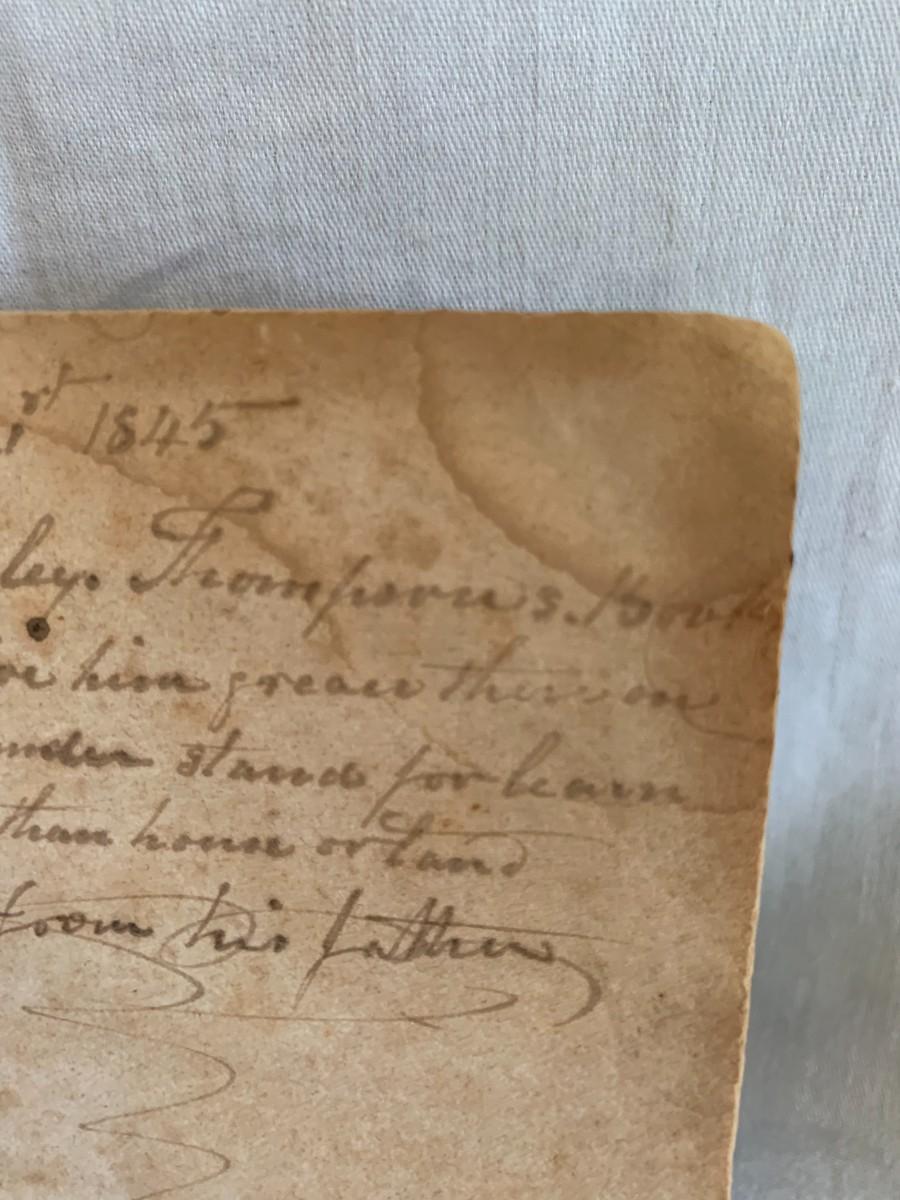 1st 1845
ley. Thompson s. Book
him greace therein on
under stand for learn
than house or Land
from his father